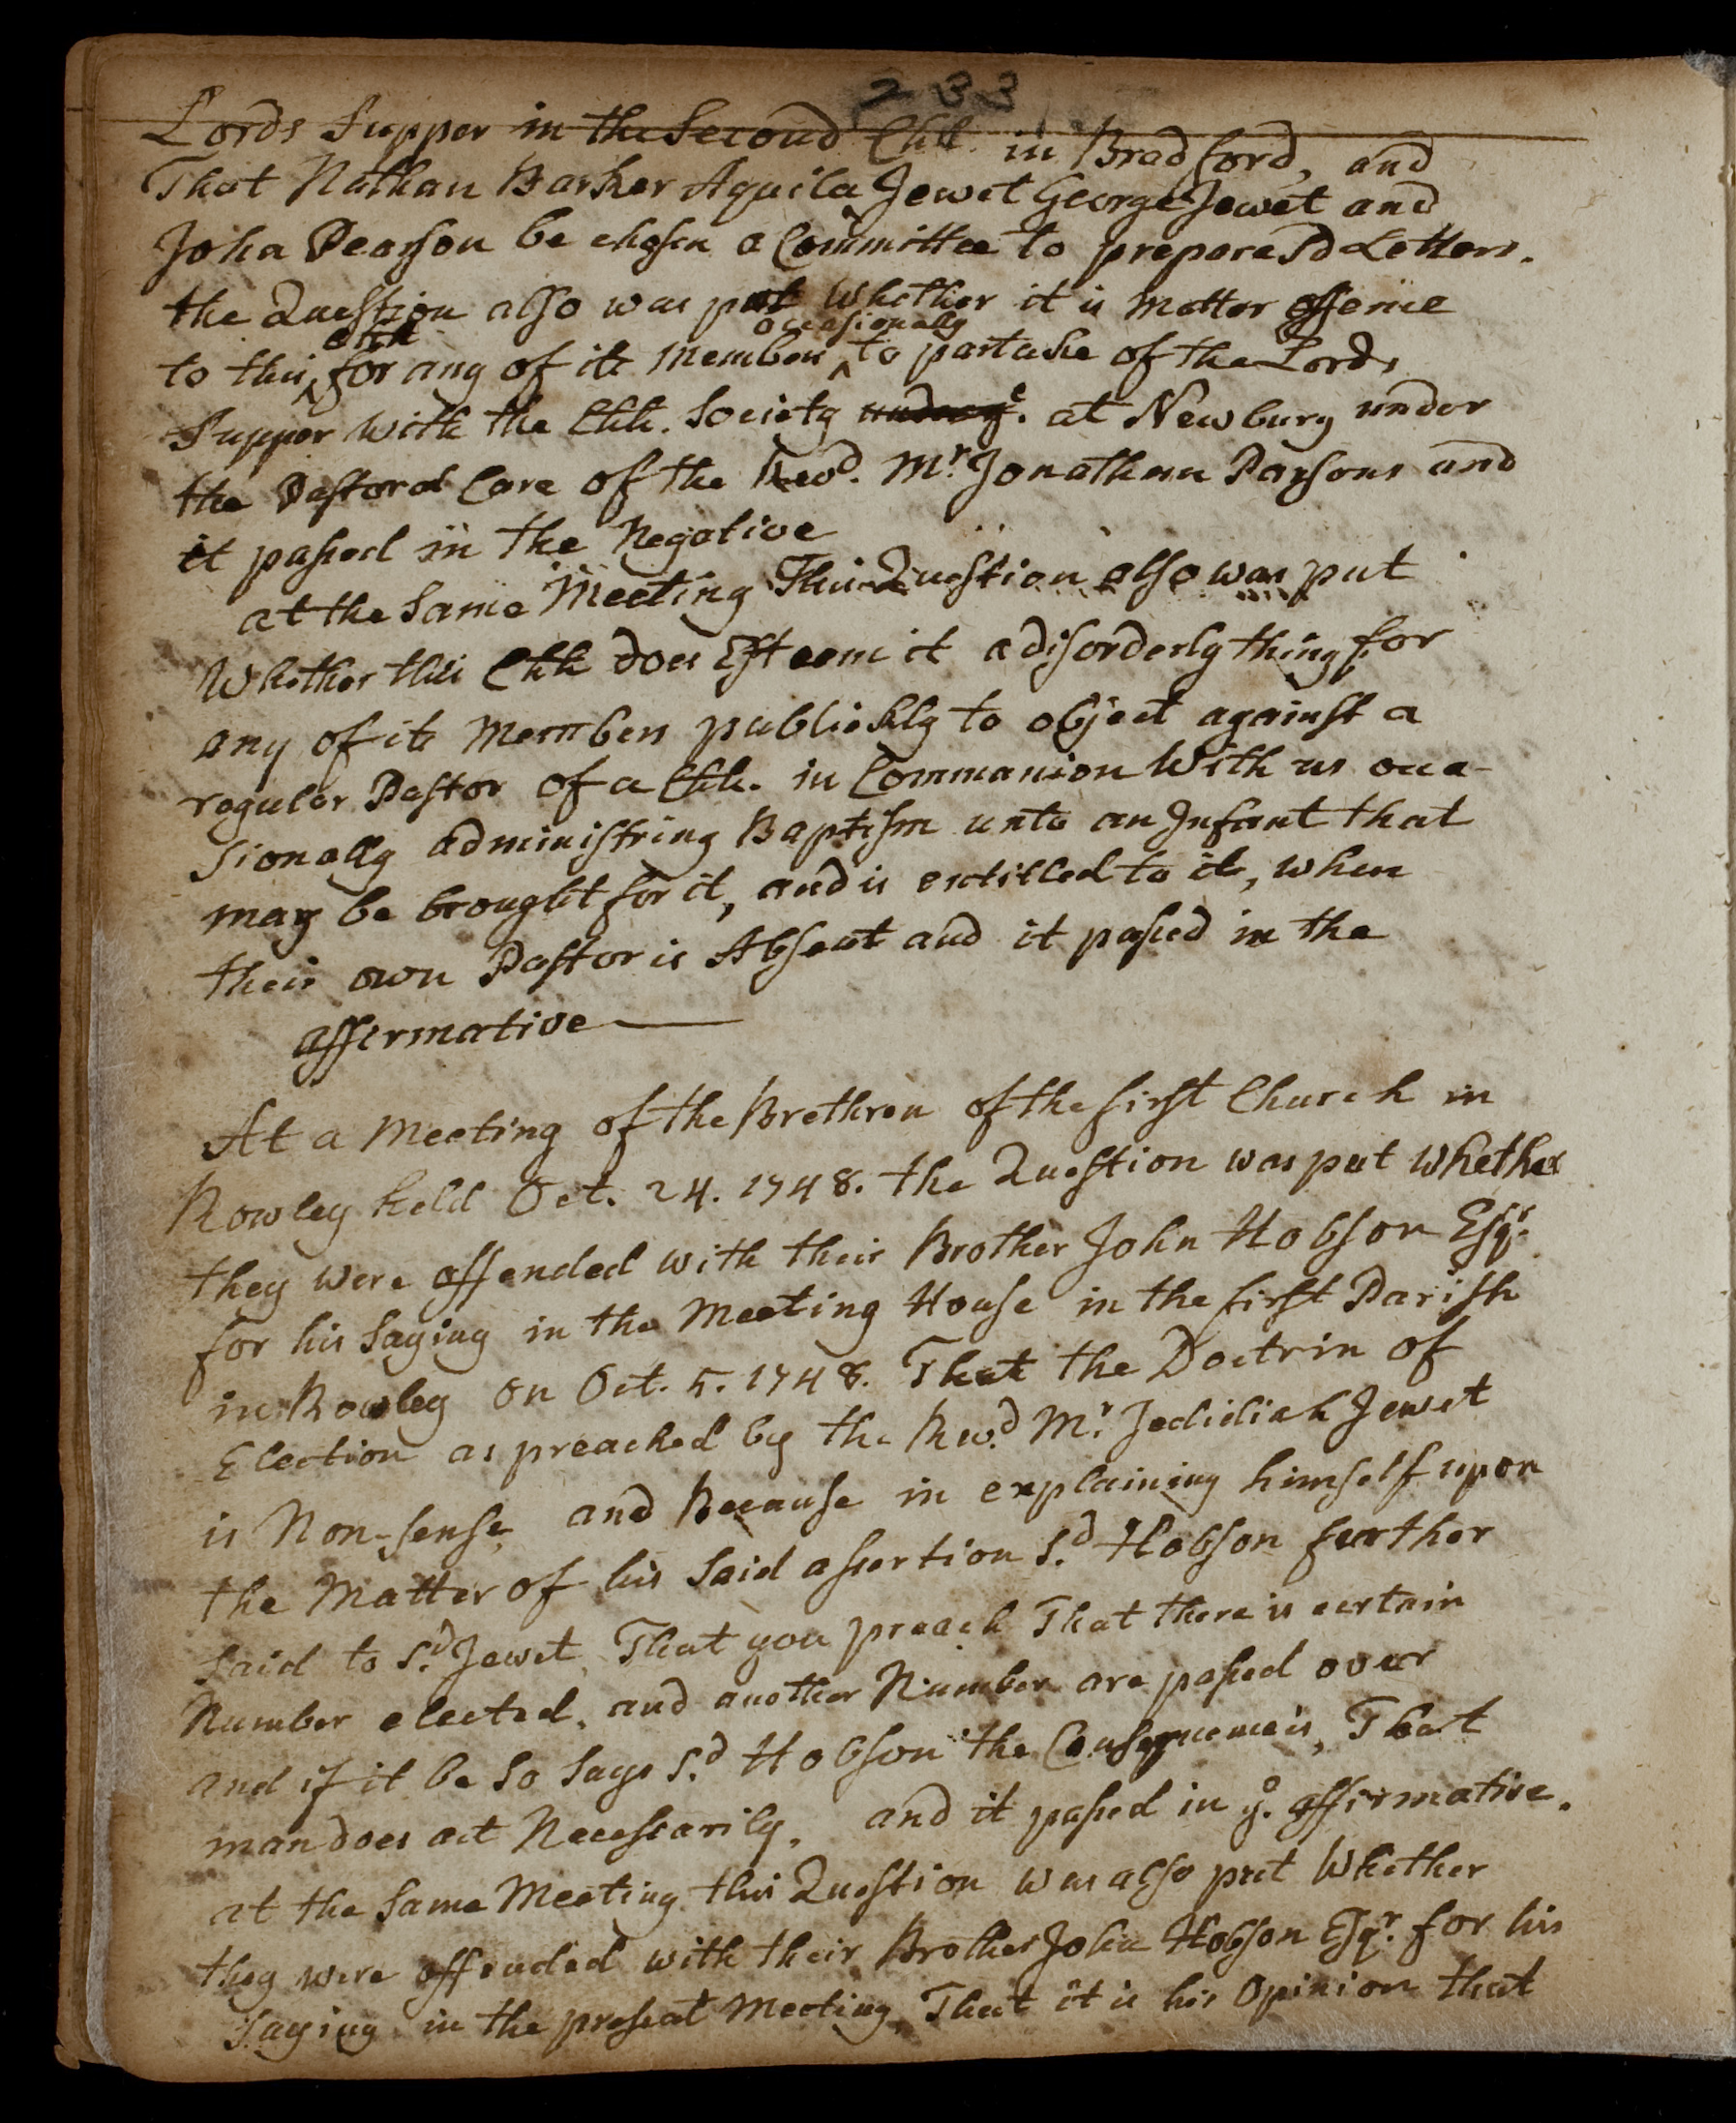 233
Lords Supper in the Second Chh. in Bradford, and
That Nathan Barker Aquila Jewet George Jewet and
John Pearson be chosen a Committee to prepare Sd Letters.
the Question also was put Whether it is Matter offence
to this chh for any of its Members occasionally to partake of the Lords
Supper with the Chh. Society at Newbury under
the Pastoral Care of the Revd. Mr. Jonathan Parsons and
it passed in the Negative
at the Same Meeting This Question also was put
Whether this Chh does Esteem it a disorderly thing for
any of its Members publickly to object against a
regular Pastor of a Chh. in Communion With us occa-
sionally administring Baptism unto an Infant that
may be brought for it, and is entitled to it, when
their own Pastor is Absent and it passed in the
affirmative
At a Meeting of the Brethren of the first Church in
Rowley held Oct. 24. 1748. the Question was put whether
they were offended with their Brother John Hobson Esqr.
for his Saying in the Meeting House in the first Parish
in Rowley on Oct. 5. 1748. That the Doctrin of
Election as preached by the Revd. Mr. Jedidiah Jewet
is Non-sense, and Because in explaining himself upon
the Matter of his Said assertion Sd. Hobson further
Said to Sd. Jewet, That you preach That there is certain
Number elected, and another Number are passed over
and if it be So Says Sd. Hobson the Consequence is, That
man does act Necessarily, and it passed in ye. affirmative.
at the Same Meeting this Question was also put Whether
they were offended with their Brother John Hobson Esqr. for his
Saying in the present Meeting, That it is his Opinion that